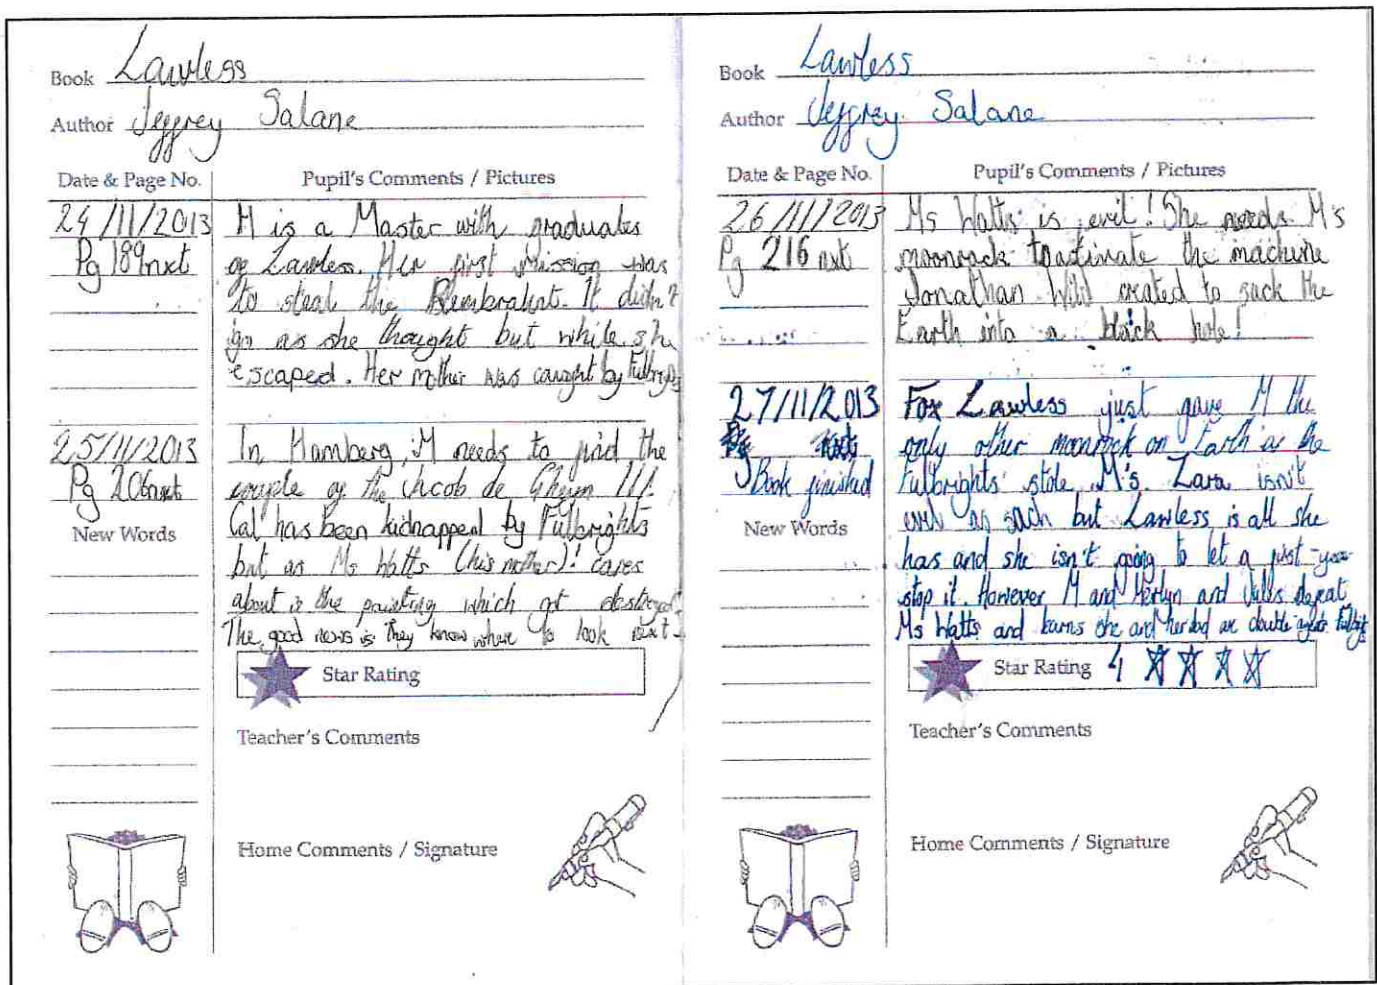 Book Lawless
Author Jeffrey Salane
Date & Page No.
Pupil's Comments / Pictures
24/11/2013
Pg 189 nxt
M is a Master with graduates
of Lawless. Her first Mission was
to steal the
It didn't
go as she thought but while she
escaped. Her mother was caught by Fulbrights
25/11/2013
Pg 206 nxt
In Hamberg, M needs to find the
couple of the Jacob de Gheyn III.
Cal has been kidnapped by Fulbrights
but as Ms Watts (his mother)! cares
about is the painting which got destroyed.
The good news is they know where to look next.
New Words
Star Rating
Teacher's Comments
Home Comments / Signature
Book Lawless
Author Jeffrey Salane
Date & Page No.
Pupil's Comments / Pictures
26/11/2013
Pg 216 nxt
Ms Watts is evil! She needs M's
moonrock to activate the machine
Jonathan Wild created to suck the
Earth into a black hole!
27/11/2013
Book finished
Fox Lawless just gave M the
only other moonrock on Earth as the
Fulbrights stole M's. Zara isn't
evil as such but Lawless is all she
has and she isn't going to let a
stop it. However M and Merlyn and Jules defeat
Ms Watts and learns she and her dad are double agents
New Words
Star Rating 4
Teacher's Comments
Home Comments / Signature